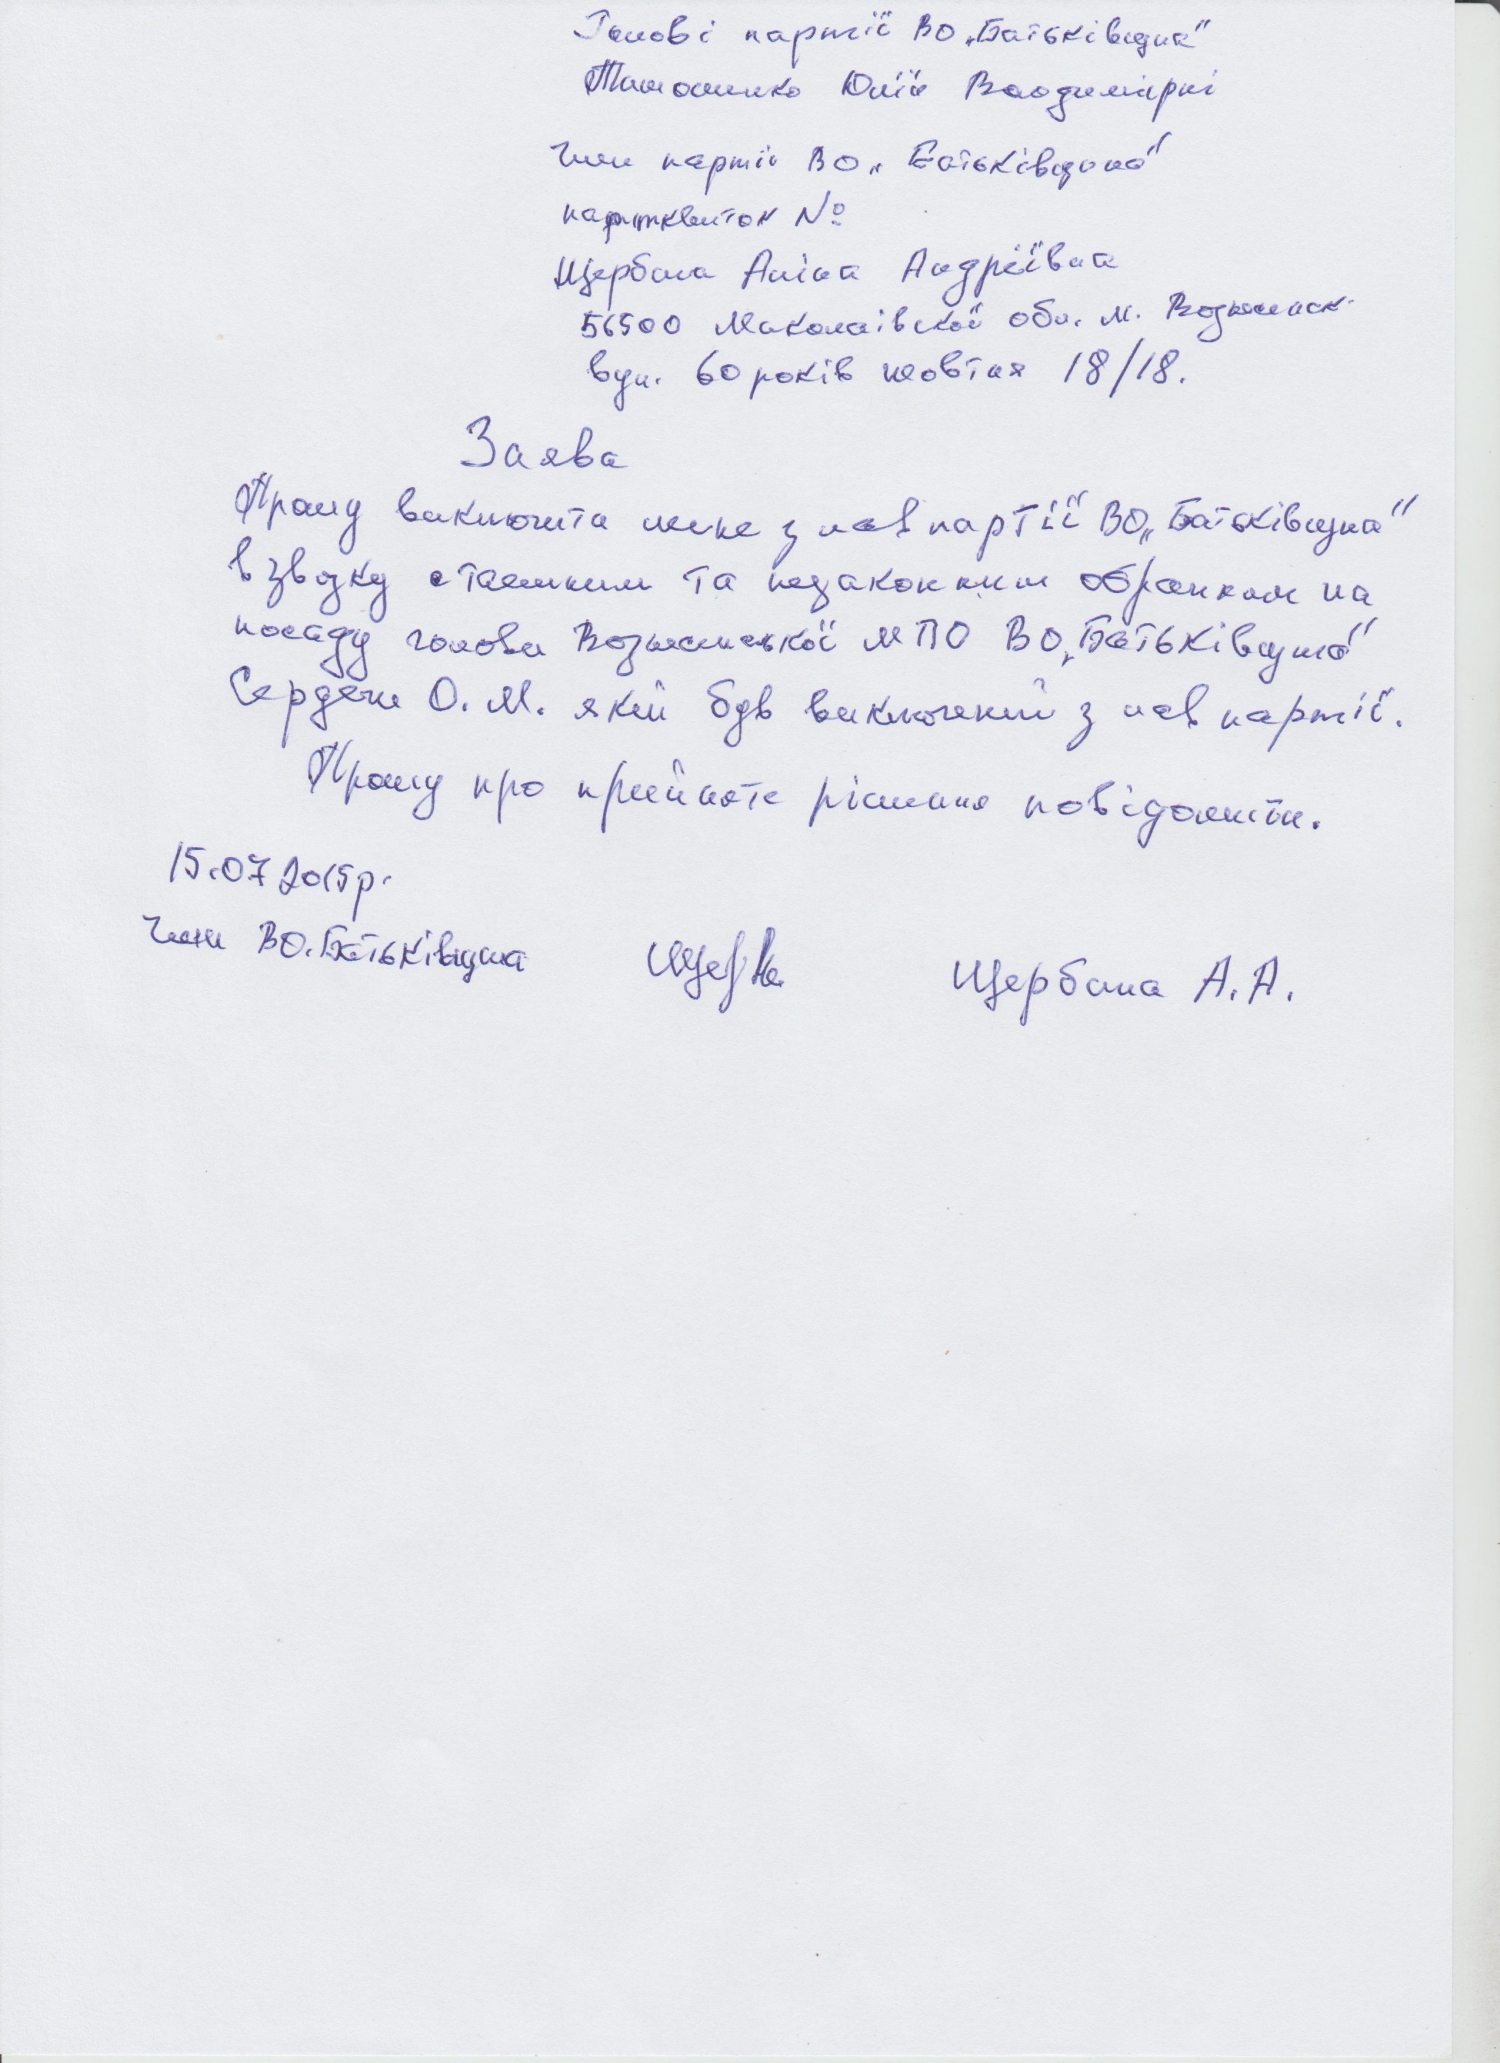 Голові партії ВО „Батьківщина"
Тимошенко Юлії Володимирні
Член партії ВО „Батьківщина"
партквиток №
Щербина Аліна Андріївна
56500 Миколаївської обл. м. Вознесенськ
вул. 60 років жовтня 18/18.
Заява
Прошу виключити мене з лав партії ВО „Батьківщина"
в звязку с таємним та незаконним обранням на
посаду голови Вознесенської МПО ВО „Батьківщина"
О. М. який був виключений з лав партії.
Прошу про прийняте рішення повідомити.
15.07 2015р.
Член ВО. Батьківщина Щербина А. А.